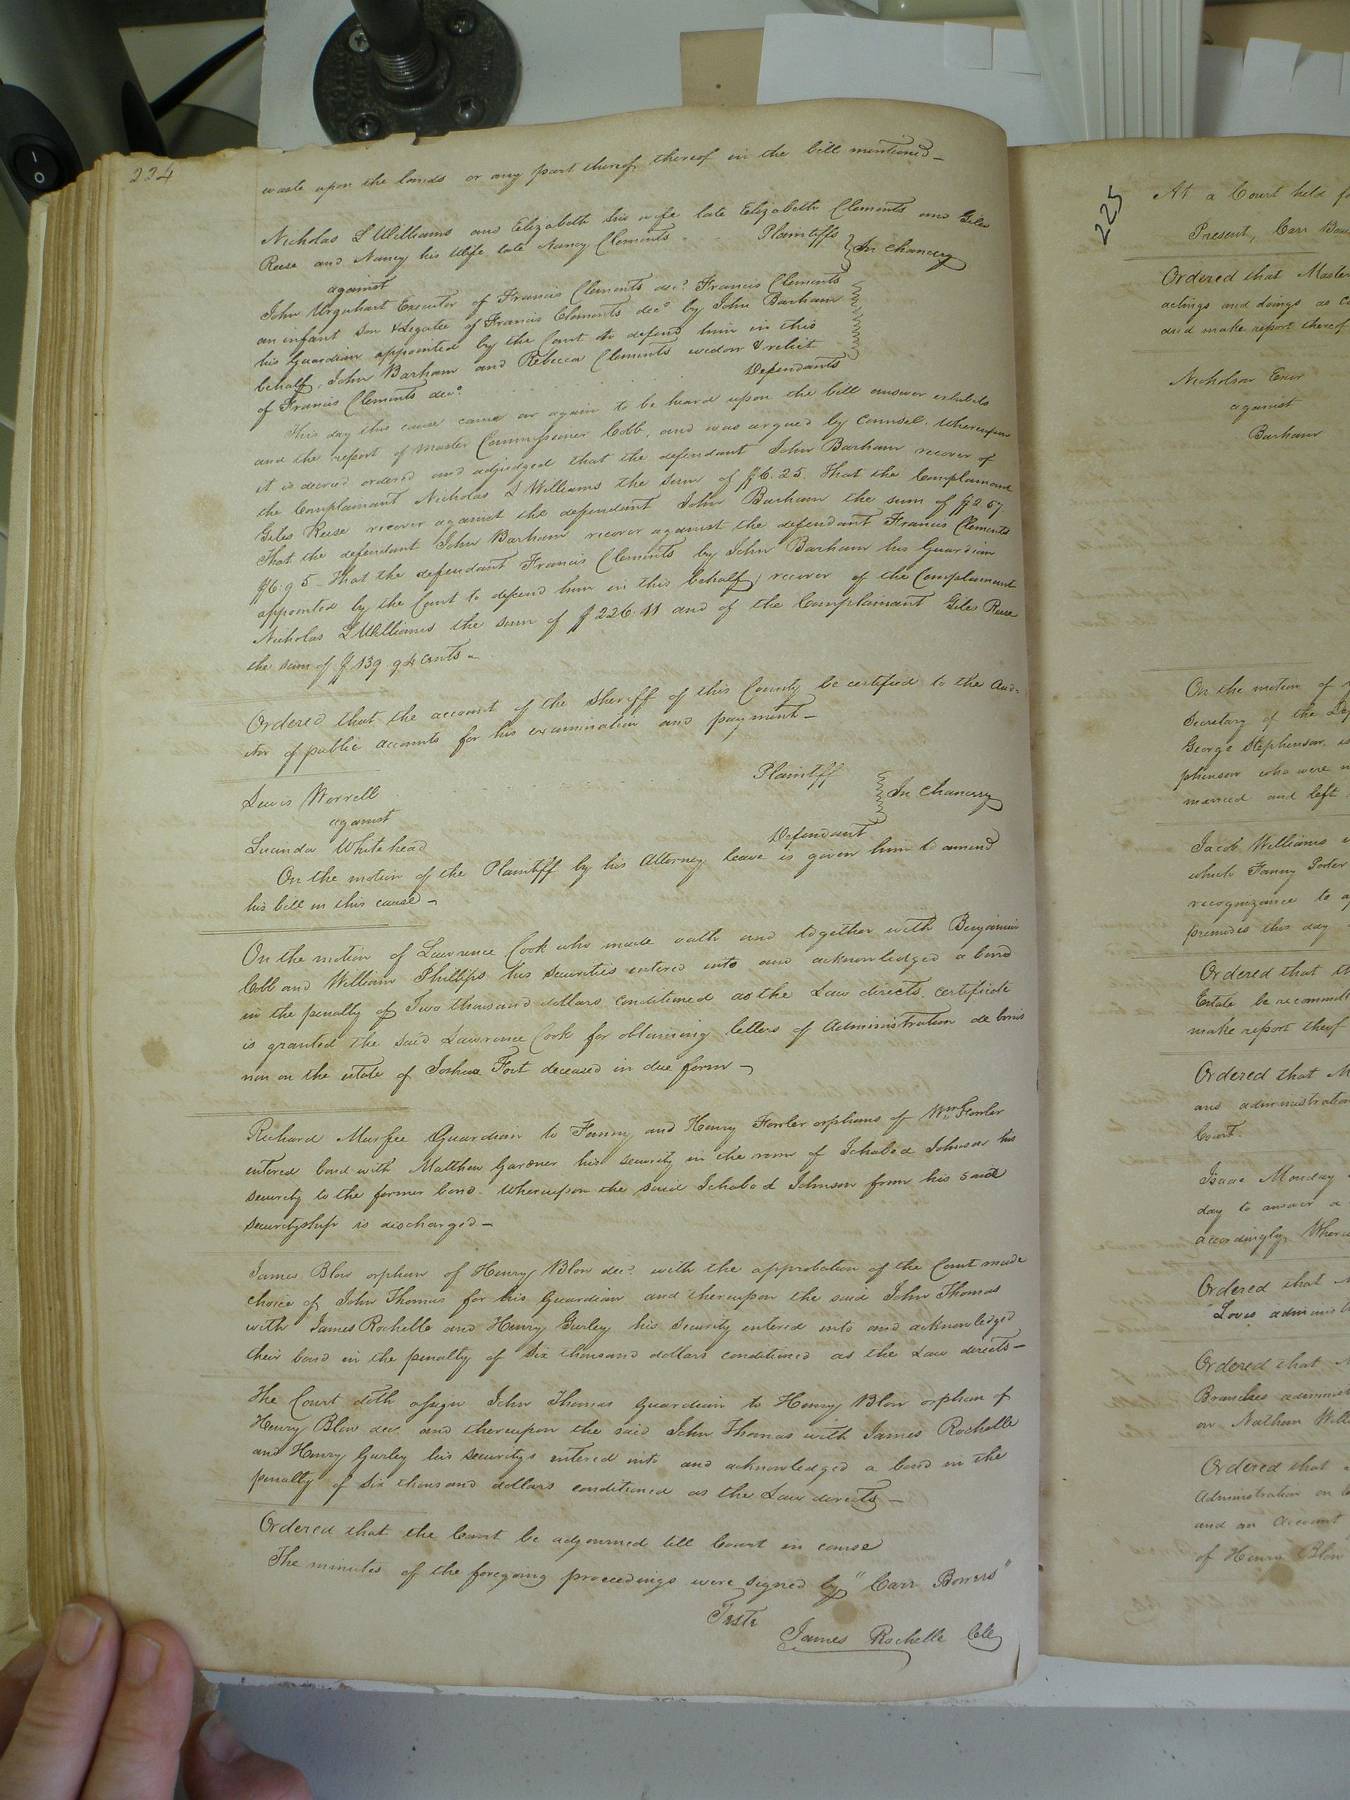 224
waste upon the lands or any part thereof, thereof in the bill mentioned
Nicholas L Williams and Elizabeth his wife late Elizabeth Clements and Giles
Reese and Nancy his Wife late Nancy Clements Plaintiffs
In Chancery
against
John Urquhart Executor of Francis Clements decd. Francis Clements
an infant son & Legatee of Francis Clements decd. by John Barham
his Guardian appointed by the Court to defend him in this
behalf, John Barham and Rebecca Clements widow & relict
of Francis Clements decd. Defendants
This day this cause came on again to be heard upon the bill answer exhibits
and the report of Master Commissioner Cobb, and was argued by Counsel. Whereupon
it is decreed ordered and adjudged that the defendant John Barham recover of
the Complainant Nicholas L Williams the sum of $6.25. That the Complainant
Giles Reese recover against the defendant John Barham the sum of $2.57.
That the defendant John Barham recover against the defendant Francis Clements
$6.95. That the defendant Francis Clements by John Barham his Guardian
appointed by the Court to defend him in this behalf, recover of the Complainant
Nicholas L Williams the sum of $226.11 and of the Complainant Giles Reese
the sum of $139.94 cents
Ordered that the account of the Sheriff of this County be certified to the Aud-
itor of public accounts for his examination and payment
Lewis Worrell Plaintiff
against
In Chancery
Lucinda Whitehead Defendant
On the motion of the Plaintiff by his Attorney leave is given him to amend
his bill in this cause
On the motion of Lawrence Cook who made oath and together with Benjamin
Cobb and William Phillips his securities entered into and acknowledged a bond
in the penalty of Two thousand dollars conditioned as the Law directs certificate
is granted the said Lawrence Cook for obtaining letters of Administration de bonis
non on the estate of Joshua Fort deceased in due form
Richard Murfee Guardian to Fanny and Henry Fowler orphans of Wm. Fowler
entered bond with Matthew Gardner his security in the room of Ichabod Johnson his
security to the former bond. Whereupon the said Ichabod Johnson from his said
securityship is discharged
James Blow orphan of Henry Blow decd. with the approbation of the Court made
choice of John Thomas for his Guardian and thereupon the said John Thomas
with James Rochelle and Henry Gurley his security entered into and acknowledged
their bond in the penalty of Six thousand dollars conditioned as the Law directs
The Court doth assign John Thomas Guardian to Henry Blow orphan of
Henry Blow decd. and thereupon the said John Thomas with James Rochelle
and Henry Gurley his securitys entered into and acknowledged a bond in the
penalty of Six thousand dollars conditioned as the Law directs
Ordered that the Court be adjourned till Court in course
The minutes of the foregoing proceedings were signed by "Carr Bowers"
Teste
James Rochelle Clk
225
At a Court held
Present, Carr
Ordered that Master
actings and doings as
and make report thereof
Nicholson Exor
against
Barham
On the motion of
Secretary of the
George Stephenson, is
phenson who were
married and left
Jacob Williams
which Fanny Porter
recognizance to
premises this day
Ordered that
Estate be recommitted
make report thereof
Ordered that
and administration
Court
Isaac Munday
day to answer a
accordingly, Where
Ordered that
Ordered that
on Nathan
Ordered that
Administration on
and an Account
of Henry Blow